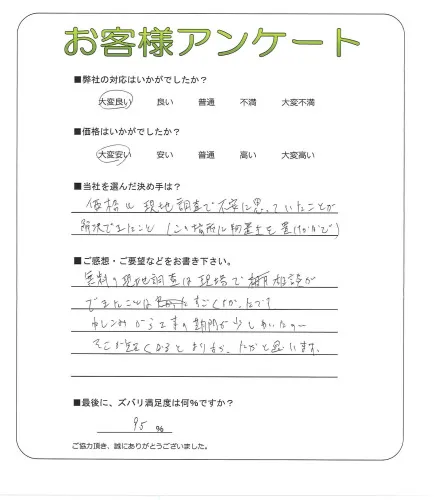 お客様アンケート
■弊社の対応はいかがでしたか?
大変良い 良い 普通 不満 大変不満
■価格はいかがでしたか?
大変安い 安い 普通 高い 大変高い
■当社を選んだ決め手は?
価格と現地調査で不安に思っていたことが
解決できたこと(この場所に物置を置けるかどうか)
■ご感想・ご要望などをお書き下さい。
無料の現地調査は現場で相談が
できたことはすごくよかったです
から工事の期間が少し
そこが短くなるとよりよかったかと思います。
■最後に、ズバリ満足度は何%ですか?
95 %
ご協力頂き、誠にありがとうございました。